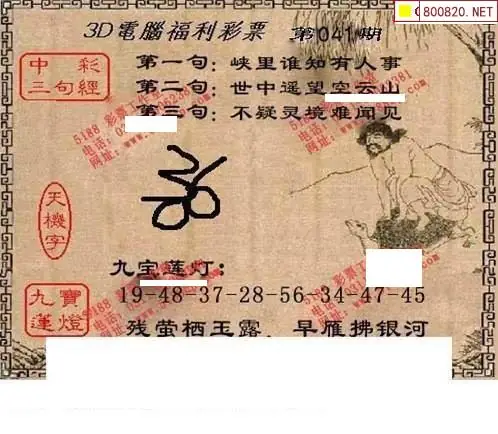 C800820.NET
3D電腦福利彩票 第041期
中彩
三句經
第一句：峡里谁知有人事
第二句：世中遥望空云山
第三句：不疑灵境难闻见
天機字
九宝莲灯：
九寶
蓮燈
19-48-37-28-56 34-47-45
残萤栖玉露，早雁拂银河